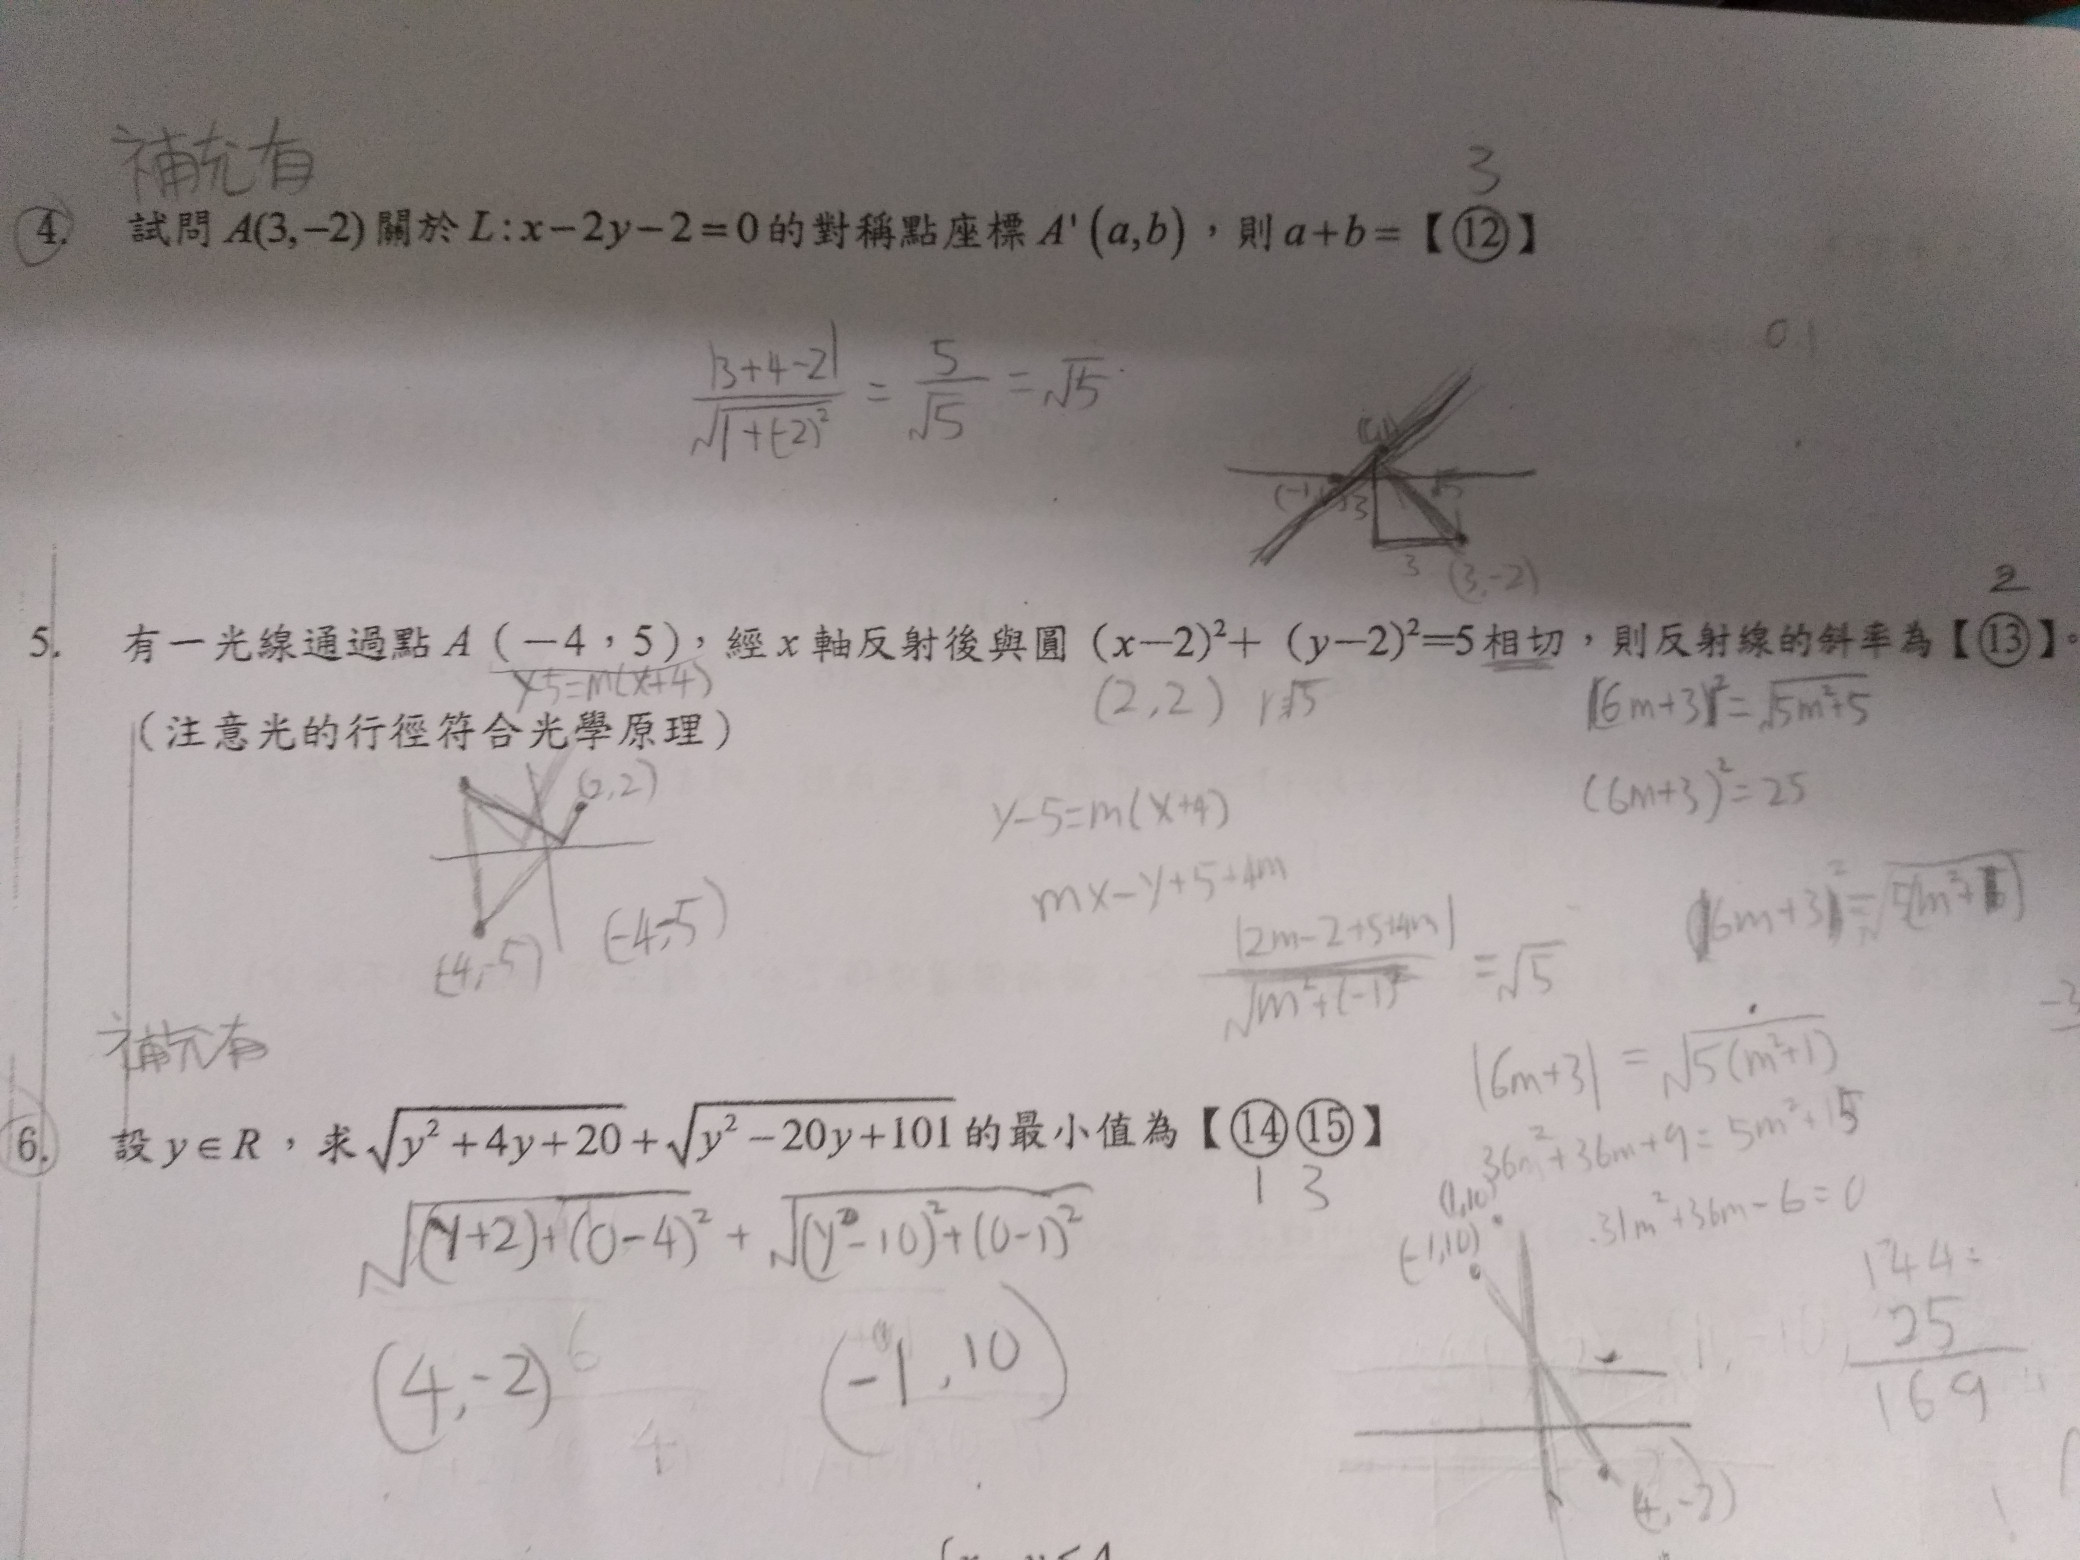 補充有
3
4. 試問 A(3,−2) 關於 L:x−2y−2=0 的對稱點座標 A'(a,b),則 a+b=【⑫】
|3+4-2| / √(1+(-2)²) = 5/√5 = √5
0 1
3
3
(3,-2)
2
5. 有一光線通過點 A(−4,5),經 x 軸反射後與圓 (x−2)²+(y−2)²=5 相切,則反射線的斜率為【⑬】。
y-5=m(x+4)
(2,2) r=√5
|6m+3|²=√5m²+5
(注意光的行徑符合光學原理)
(2,2)
y-5=m(x+4)
(6m+3)²=25
mx-y+5+4m
(-4,-5)
(-4,-5)
|2m-2+5+4m| / √(m²+(-1)²) = √5
補充有
|6m+3| = √5(m²+1)
6. 設 y∈R,求 √(y²+4y+20)+√(y²−20y+101) 的最小值為【⑭⑮】
36m²+36m+9=5m²+15
1 3
31m²+36m-6=0
√(y+2)+(0-4)² + √(y²-10)²+(0-1)²
(1,10)
(-1,10)
144
25
169
(4,-2)
(-1,10)
(4,-2)